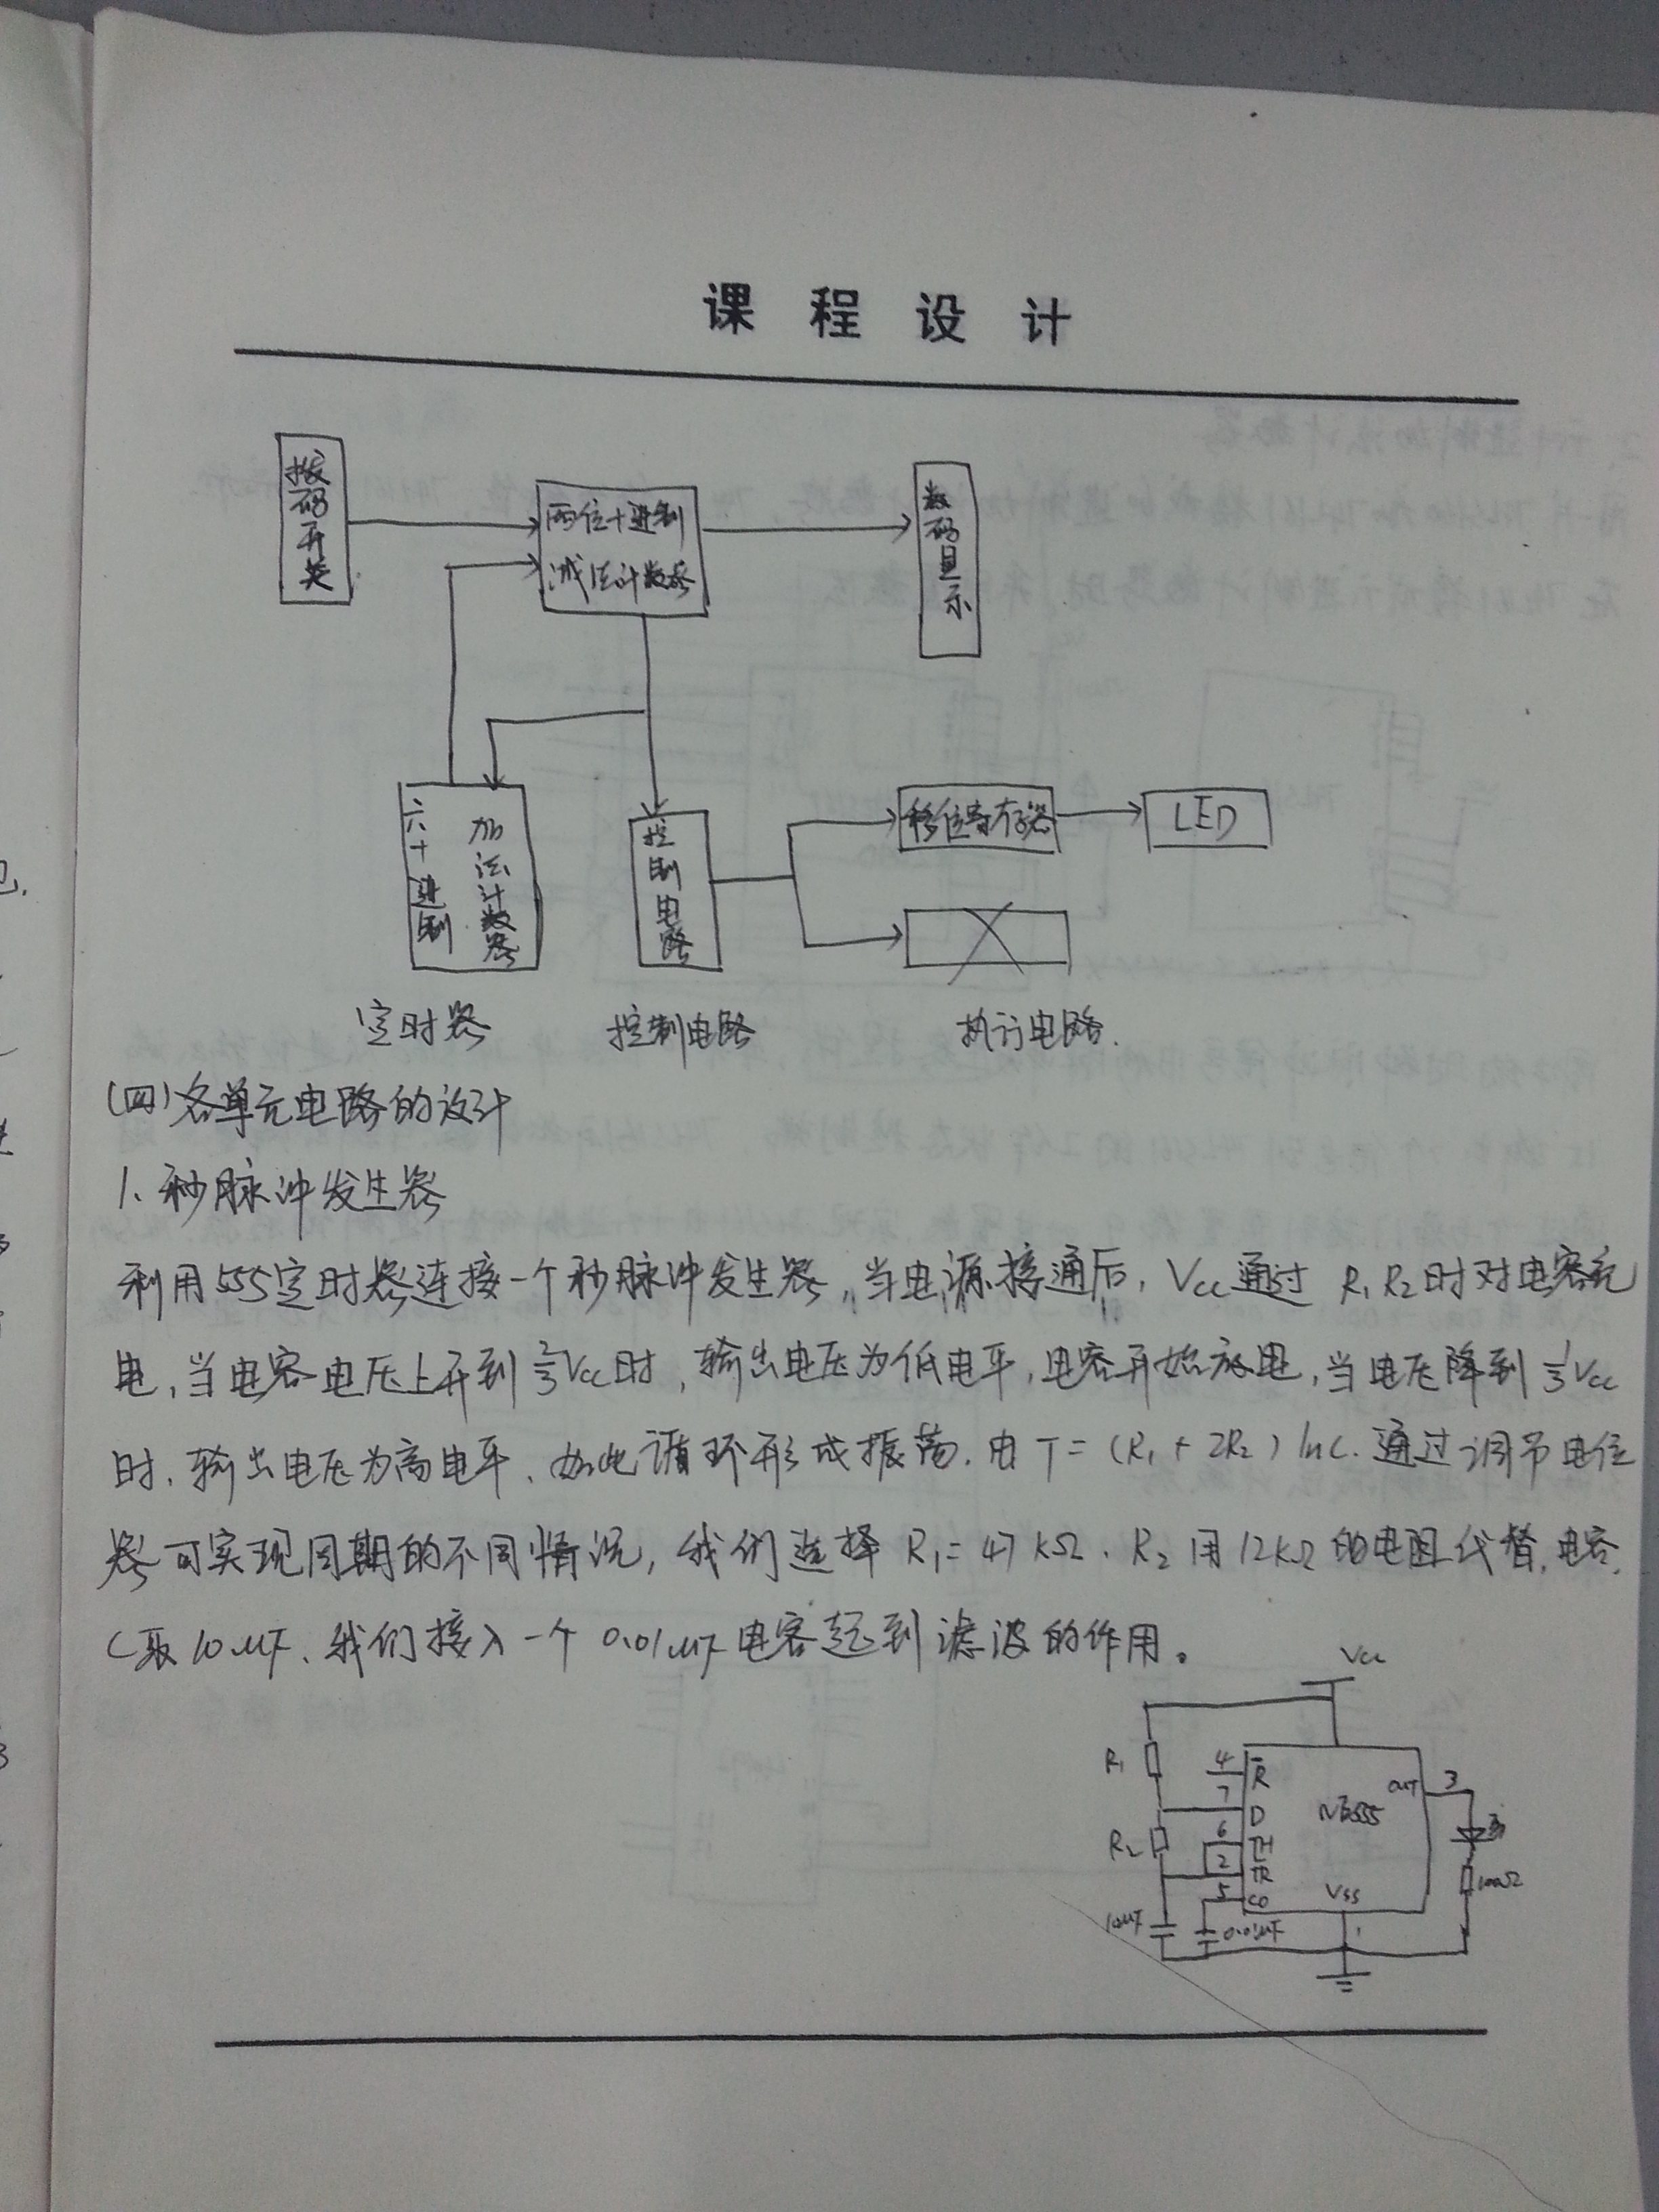 课程设计
拨码开关
两位十进制
减法计数器
数码显示
六十进制
加法计数器
控制电路
移位寄存器
LED
定时器
控制电路
执行电路.
(四)各单元电路的设计
1、秒脉冲发生器
利用555定时器连接一个秒脉冲发生器,当电源接通后,Vcc通过 R₁R₂时对电容充
电,当电容电压上升到⅔Vcc时,输出电压为低电平,电容开始放电,当电压降到⅓Vcc
时,输出电压为高电平、如此循环形成振荡.由 T=(R₁+2R₂)lnC.通过调节电位
器可实现周期的不同情况,我们选择 R₁=47KΩ、R₂用12KΩ的电阻代替,电容,
C取10μF、我们接入一个0.01μF电容起到滤波的作用。
Vcc
R₁
4
R̅
7
D
R₂
6
TH
2
5
CO
NE555
OUT
3
Vss
1
100Ω
10μF
0.01μF